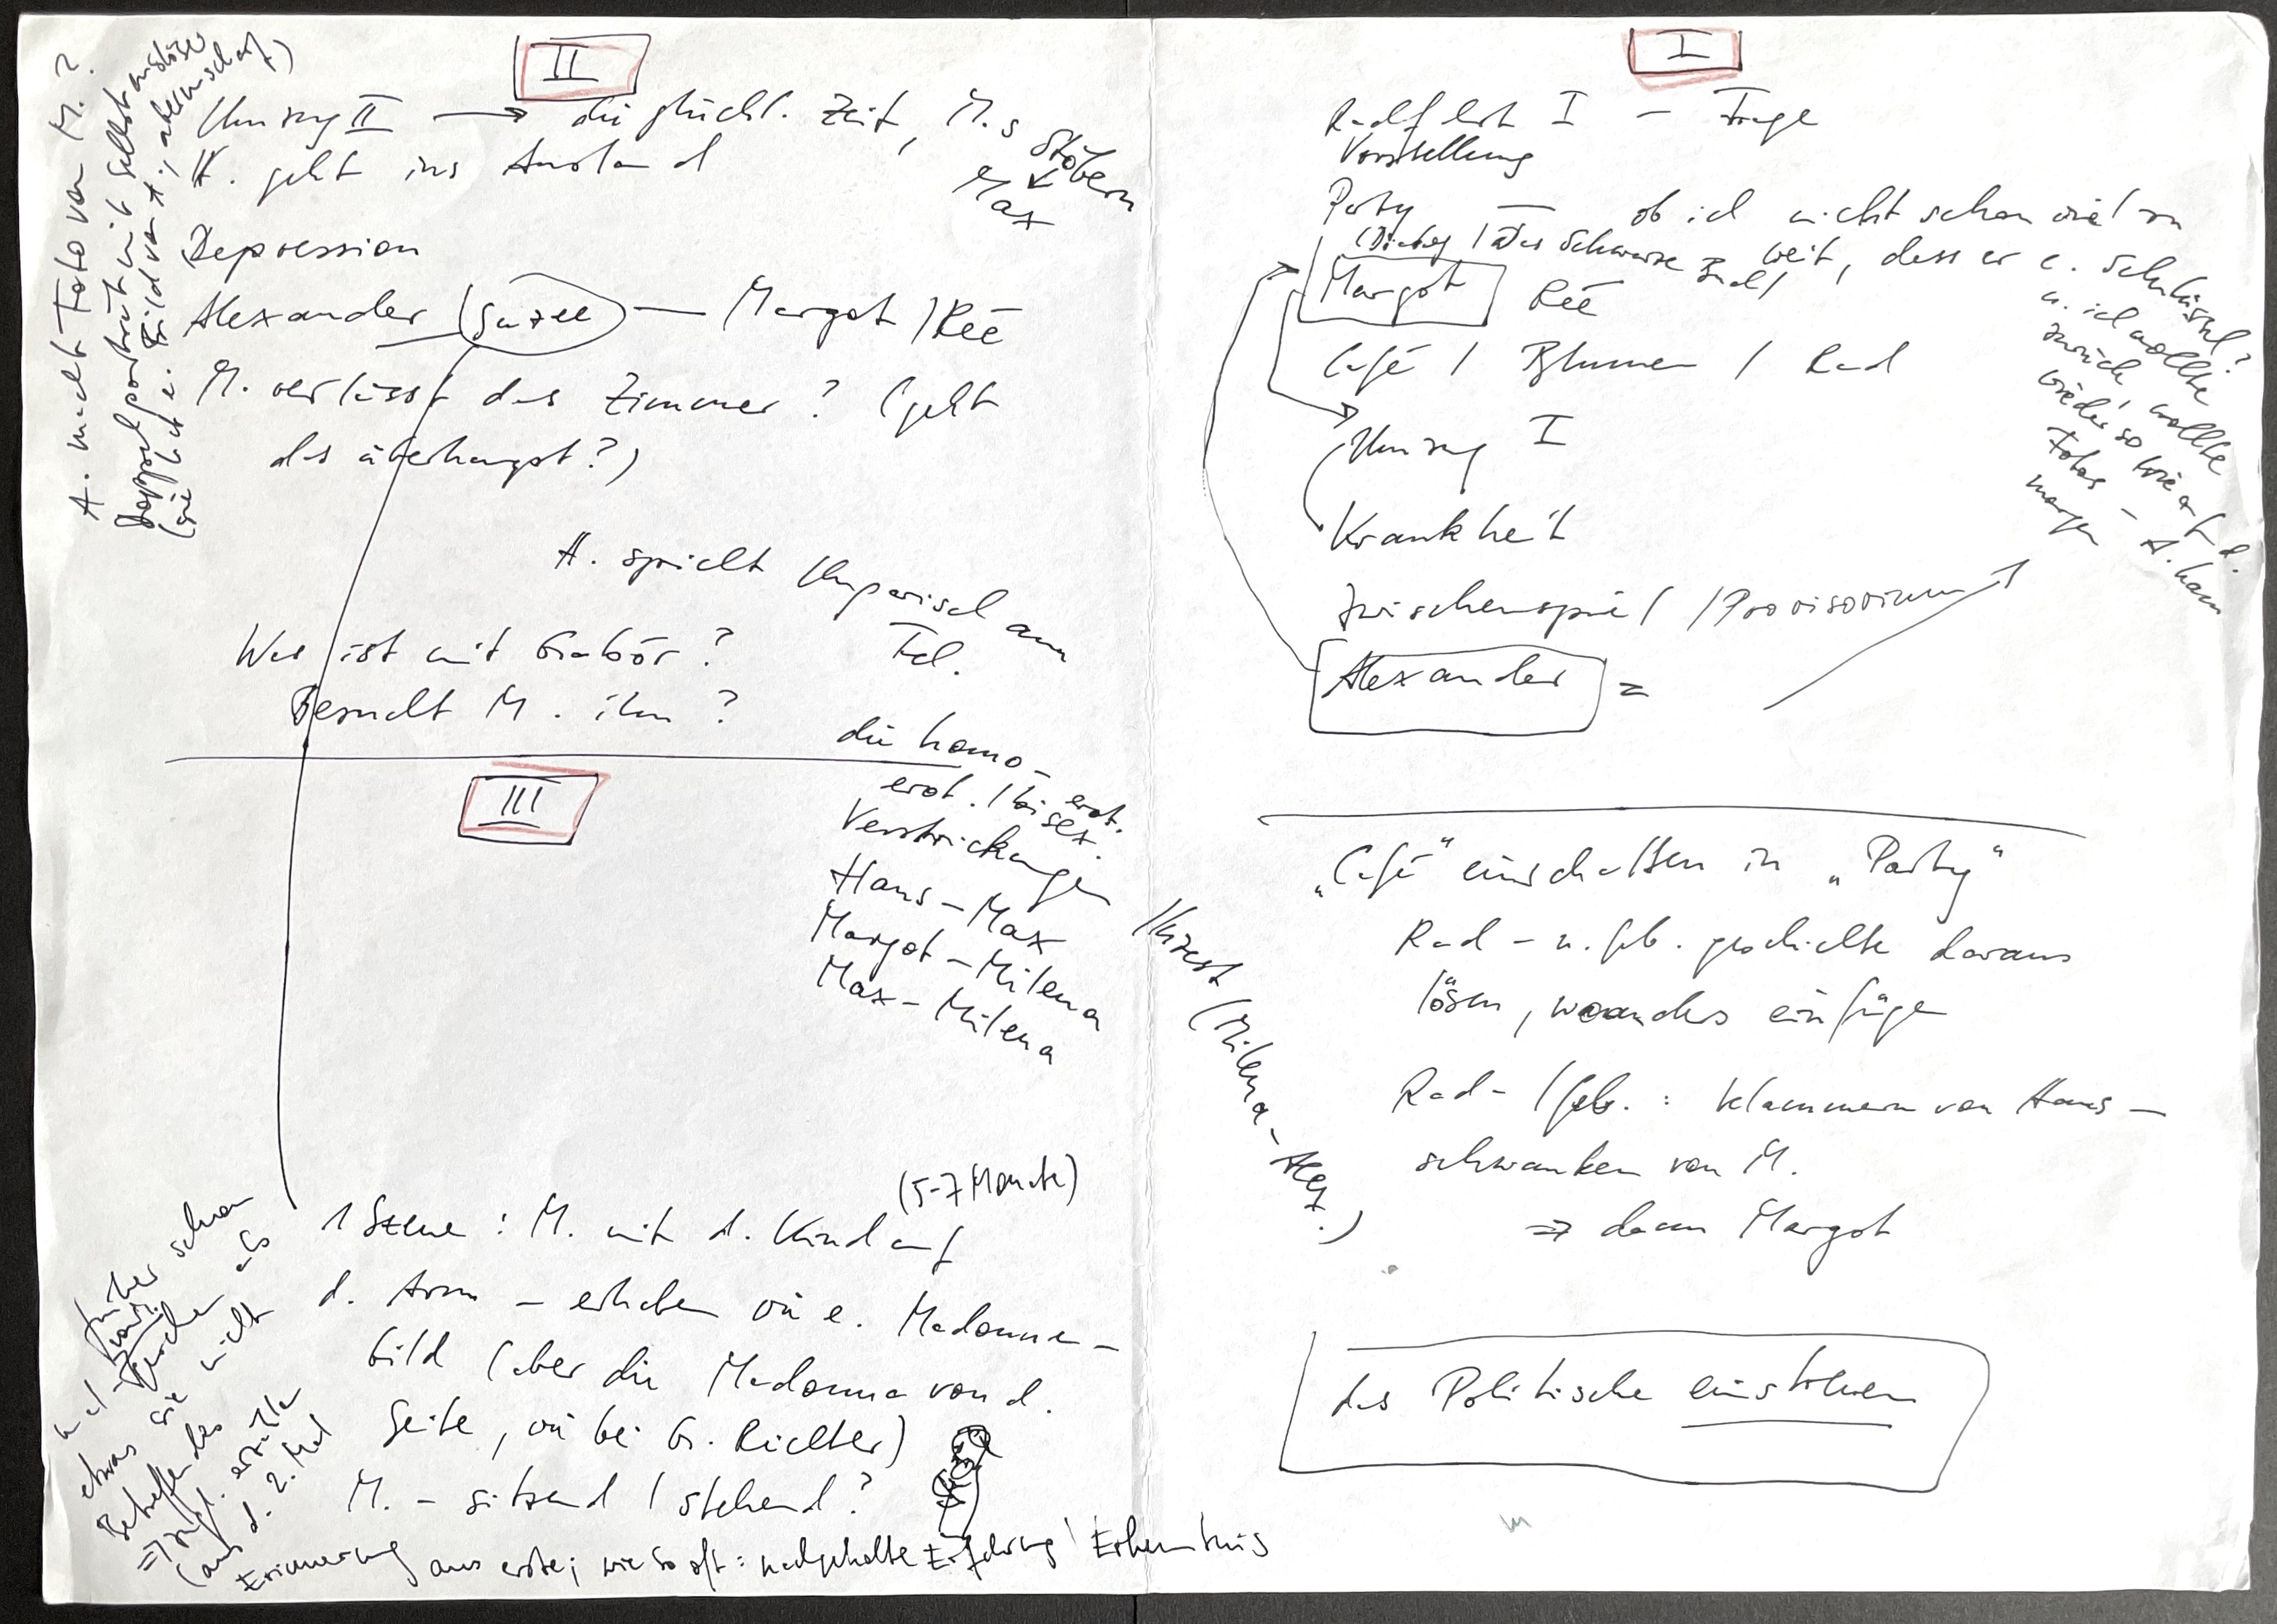 II
Umzug II → die glückl. Zeit, M.s Stöbern
Max
A. geht ins Ausland
Depression
Alexander (Suzee) — Margot / Rée
M. verlässt das Zimmer? (geht
das überhaupt?)
A. spielt Ungarisch am
Tel.
Was ist mit Gabór?
Besucht M. ihn?
A. macht Foto von M.?
Doppelporträt mit Selbstauslöser
die homo-
erot. / bisex.
erot.
Verstrickungen
Hans – Max
Margot – Milena
Max – Milena
/ Inzest (Milena – Alex.)
III
(5-7 Monate)
1 Szene: M. mit d. Kind auf
d. Arm – erhaben wie e. Madonnen-
bild (aber die Madonna von d.
Seite, wie bei G. Richter)
M. – sitzend / stehend?
früher schon
etwas sie nicht
Betreffendes
erzählen
(aus d. 2. Mal
Erinnerung aus erste; wie so oft: nachgeholte Erfahrung / Erkenntnis
I
Radfahrt I – Frage
Vorstellung
Party — ob ich nicht schon viel zu
(Dialog / Das Schwarze Buch) weit, dass er e. Schlüssel?
u. ich wollte
zurück, wollte
wieder so wie auf d.
Fotos – A. kam
morgen
Margot Rée
Café / Blumen / Rad
Umzug I
Krankheit
Zwischenspiel / Provisorium
Alexander =
"Café" einschalten in "Party"
Rad- u. Geb. geschichte daraus
lösen, woanders einfügen
Rad- / Geb.: Klammern von Hans –
schwanken von M.
⇒ dann Margot
das Politische einstreuen